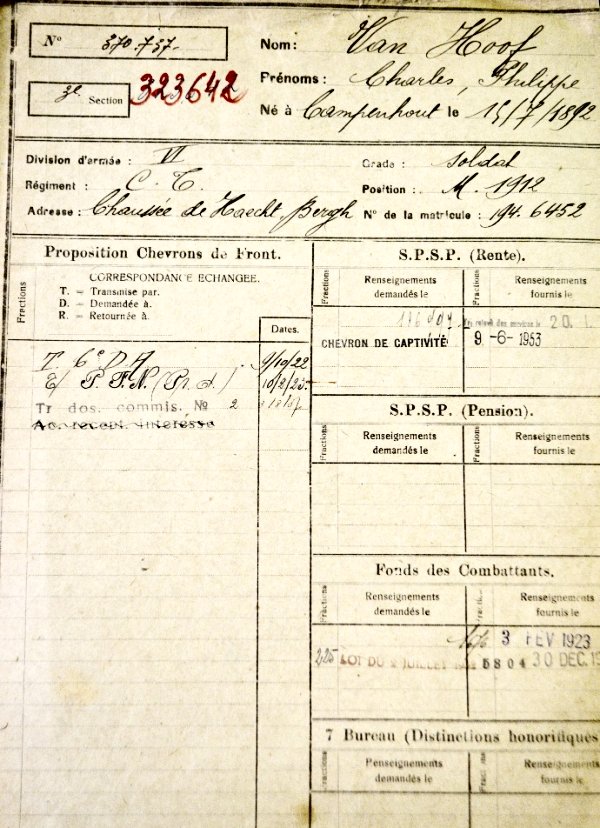 N° 370.737.
3e Section 323642
Nom: Van Hoof
Prénoms: Charles, Philippe
Né à Campenhout le 15/7/1892
Division d'armée: VI
Grade: soldat
Régiment: C. T.
Position: M. 1912
Adresse: Chaussée de Haecht, Bergh
N° de la matricule: 194.6452
Proposition Chevrons de Front.
Fractions
CORRESPONDANCE ECHANGÉE.
T. - Transmise par.
D. - Demandée à.
R. - Retournée à.
Dates.
T 6e D A 9/10/22
10/2/23
Tr dos. commis. № 2
Ac. récept. intéressé
S.P.S.P. (Rente).
Fractions
Renseignements
demandés le
Fractions
Renseignements
fournis le
20.1
CHEVRON DE CAPTIVITÉ 9 -6- 1953
S.P.S.P. (Pension).
Fractions
Renseignements
demandés le
Fractions
Renseignements
fournis le
Fonds des Combattants.
Fractions
Renseignements
demandés le
Fractions
Renseignements
fournis le
3 FEV 1923
225 LOI DU JUILLET 5804 30 DEC.
7 Bureau (Distinctions honorifiques
Fractions
Renseignements
demandés le
Fractions
Renseignements
fournis le